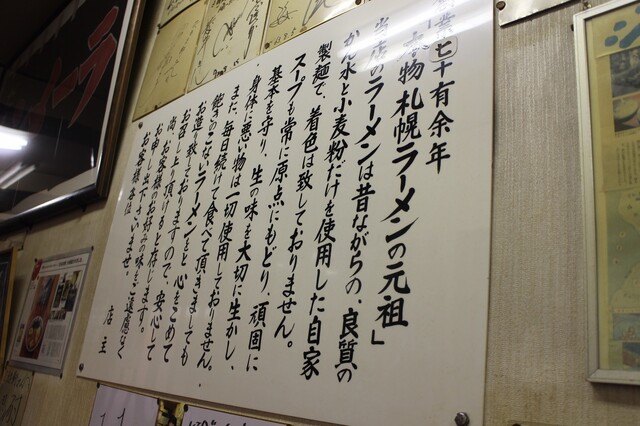 創業七十有余年
本物札幌ラーメンの元祖」
当店のラーメンは昔ながらの、良質の
かん水と小麦粉だけを使用した自家
製麺で、着色は致しておりません。
スープも常に原点にもどり、頑固に
基本を守り、生の味を大切に生かし、
身体に悪い物は一切使用しておりません。
また、毎日続けて食べて頂きましても
飽きのこないラーメンをと心をこめて
お造り致しておりますので、安心して
お召し上り頂けると存じます。
尚、お客様のお好みの味を、遠慮なく
お申し出下さいませ。
お客様各位
店主